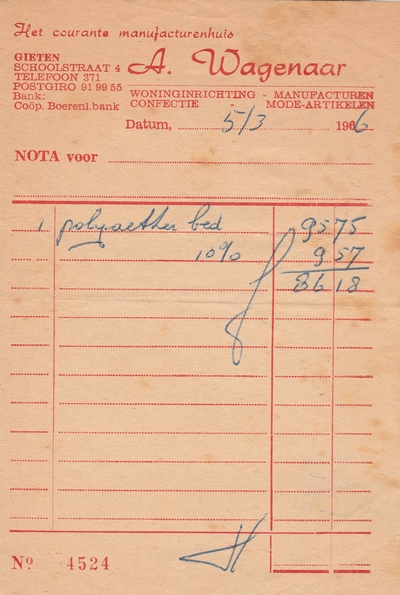 Het courante manufacturenhuis
GIETEN
SCHOOLSTRAAT 4
TELEFOON 371
POSTGIRO 91 99 55
Bank:
Coöp. Boerenl.bank
A. Wagenaar
WONINGINRICHTING - MANUFACTUREN
CONFECTIE - MODE-ARTIKELEN
Datum, 5/3 1966
NOTA voor
1 polyaether bed 95 75
10% 9 57
86 18
No 4524